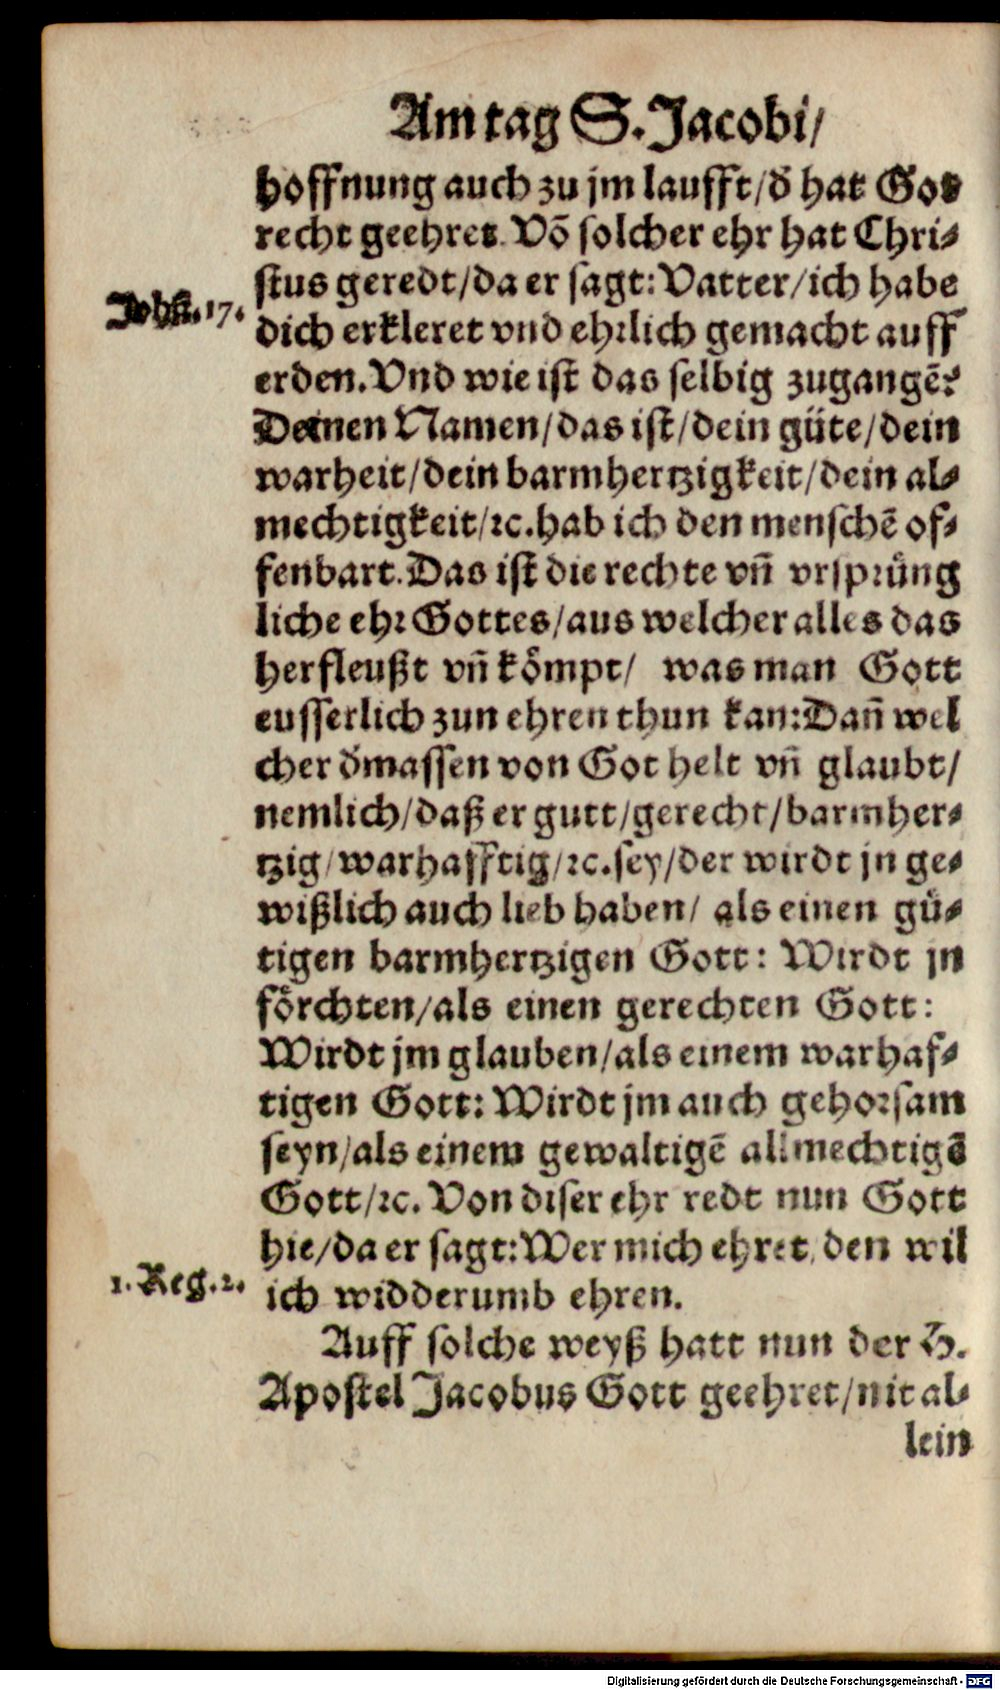 Am tag S. Jacobi/
hoffnung auch zu jm laufft/d̄ hat Got
recht geehret. Võ solcher ehr hat Chri⸗
stus geredt/da er sagt: Vatter/ich habe
Johā. 17.
dich erkleret vnd ehrlich gemacht auff
erden. Vnd wie ist das selbig zugangẽ?
Deinen Namen/das ist/dein güte/dein
warheit/dein barmhertzigkeit/dein al⸗
mechtigkeit/ꝛc. hab ich den menschẽ of⸗
fenbart. Das ist die rechte vñ vrsprüng
liche ehr Gottes/aus welcher alles das
herfleußt vñ kömpt/ was man Gott
eusserlich zun ehren thun kan: Dañ wel
cher d̄massen von Got helt vñ glaubt/
nemlich/daß er gutt/gerecht/barmher⸗
tzig/warhafftig/ꝛc. sey/der wirdt jn ge⸗
wißlich auch lieb haben/ als einen gü⸗
tigen barmhertzigen Gott: Wirdt jn
förchten/als einen gerechten Gott:
Wirdt jm glauben/als einem warhaf⸗
tigen Gott: Wirdt jm auch gehorsam
seyn/als einem gewaltigẽ allmechtigẽ
Gott/ꝛc. Von diser ehr redt nun Gott
hie/da er sagt: Wer mich ehret, den wil
1. Reg. 2.
ich widderumb ehren.
Auff solche weyß hatt nun der H.
Apostel Jacobus Gott geehret/nit al⸗
lein
Digitalisierung gefördert durch die Deutsche Forschungsgemeinschaft - DFG